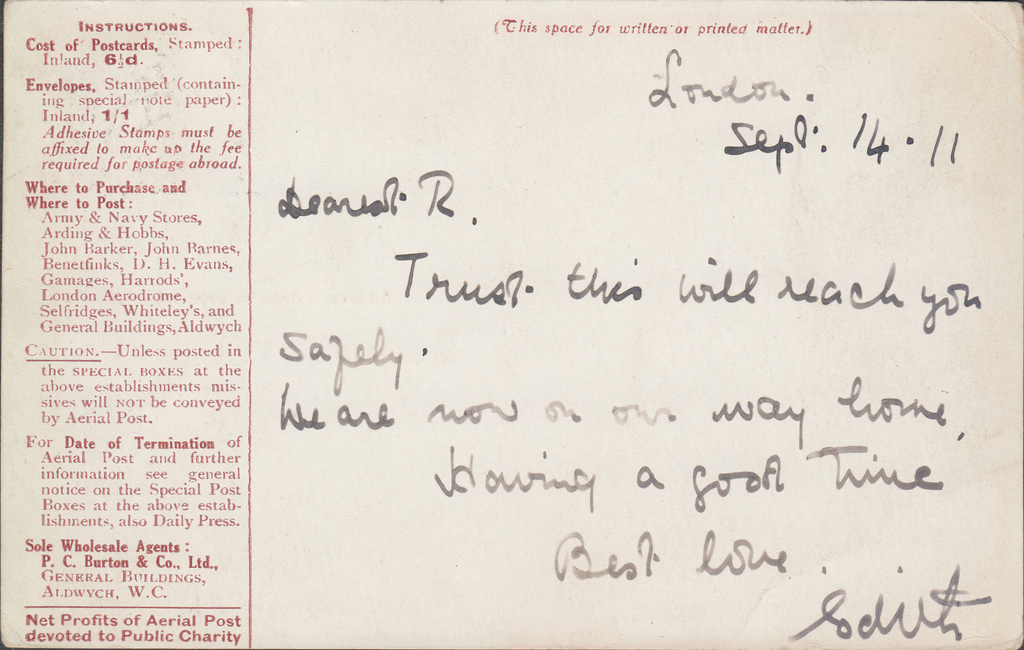 INSTRUCTIONS.
Cost of Postcards, Stamped:
Inland, 6½d.
Envelopes, Stamped (contain-
ing special note paper):
Inland, 1/1
Adhesive Stamps must be
affixed to make up the fee
required for postage abroad.
Where to Purchase and
Where to Post:
Army & Navy Stores,
Arding & Hobbs,
John Barker, John Barnes,
Benetfinks, D. H. Evans,
Gamages, Harrods',
London Aerodrome,
Selfridges, Whiteley's, and
General Buildings, Aldwych
CAUTION.—Unless posted in
the SPECIAL BOXES at the
above establishments mis-
sives will NOT be conveyed
by Aerial Post.
For Date of Termination of
Aerial Post and further
information see general
notice on the Special Post
Boxes at the above estab-
lishments, also Daily Press.
Sole Wholesale Agents:
P. C. Burton & Co., Ltd.,
GENERAL BUILDINGS,
ALDWYCH, W.C.
Net Profits of Aerial Post
devoted to Public Charity
(This space for written or printed matter.)
London.
Sept: 14.11
Dearest R.
Trust this will reach you
safely.
We are now on our way home,
Having a good time
Best love.
Edith